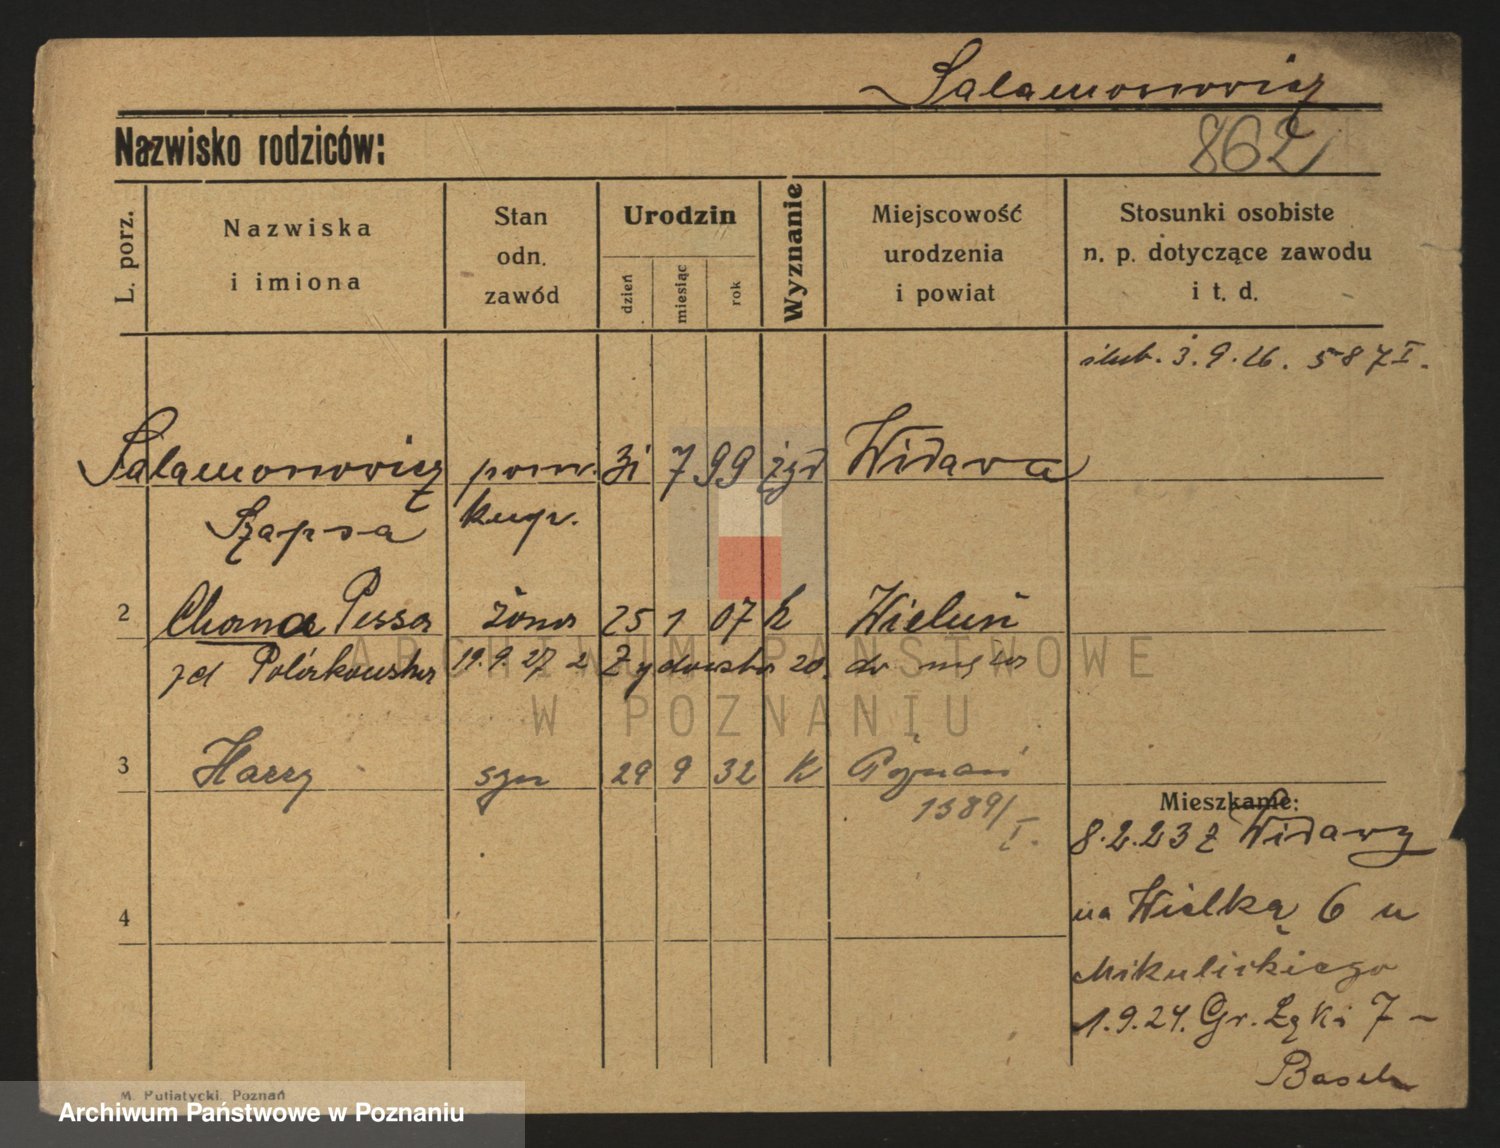 Salamonowicz
Nazwisko rodziców:
862
L. porz.
Nazwiska
i imiona
Stan
odn.
zawód
Urodzin
dzień
miesiąc
rok
Wyznanie
Miejscowość
urodzenia
i powiat
Stosunki osobiste
n. p. dotyczące zawodu
i t. d.
ślub. 3.9.26. 587 I.
Salamonowicz pomr. 31 7 99 żyd Widawa
Szapsa kupr.
2 Chana Pessa żona 25 1 07 k Wieluń
zd 19.9.27 z Żydowska 20. do męża
3 Harry syn 29 9 32 k Poznań
1389/I.
Mieszkanie:
8.2.23 z Widawy
4
na Wielką 6 u
Mikulickiego
1.9.24. Gr. Łąki 7 –
Basch
M. Putiatycki, Poznań
ARCHIWUM PAŃSTWOWE
W POZNANIU
Archiwum Państwowe w Poznaniu